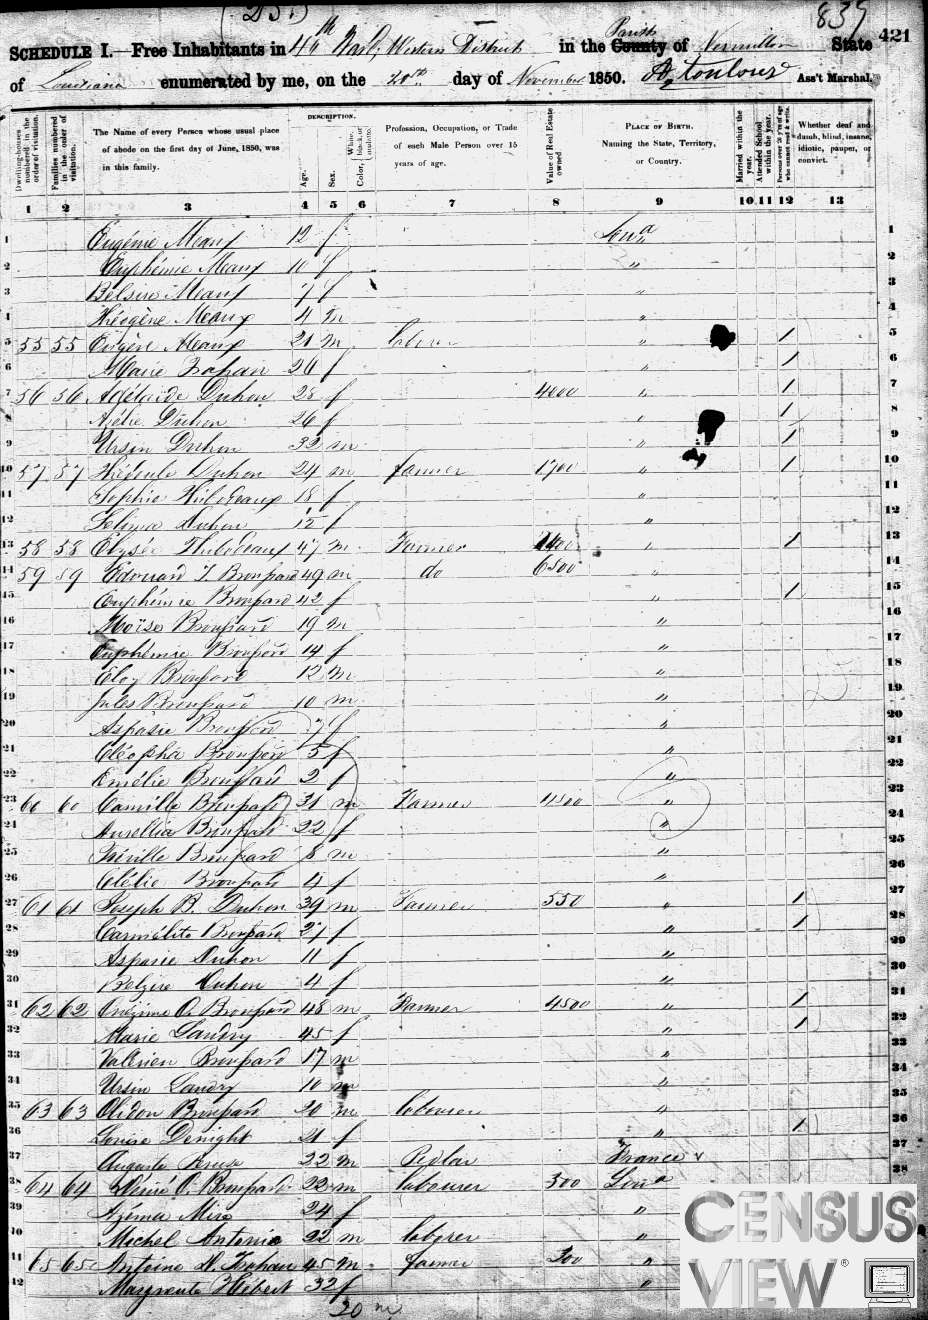 (25.) 835
SCHEDULE I.—Free Inhabitants in 4th Ward, Western District in the Parish County of Vermillon State 421
of Louisiana enumerated by me, on the 20th day of November 1850. A, toulouse Ass't Marshal.
Dwelling-houses numbered in the order of visitation.
Families numbered in the order of visitation.
The Name of every Person whose usual place of abode on the first day of June, 1850, was in this family.
DESCRIPTION.
Age.
Sex.
Color, White, black, or mulatto.
Profession, Occupation, or Trade of each Male Person over 15 years of age.
Value of Real Estate owned.
PLACE OF BIRTH. Naming the State, Territory, or Country.
Married within the year.
Attended School within the year.
Persons over 20 y'rs of age who cannot read & write.
Whether deaf and dumb, blind, insane, idiotic, pauper, or convict.
1 2 3 4 5 6 7 8 9 10 11 12 13
1 Eugénie Meaux 12 f Loua 1
2 Euphémie Meaux 10 f " 2
3 Belsire Meaux 7 f " 3
4 Théogène Meaux 4 m " 4
5 55 55 Eugène Meaux 21 m laborer " 1 5
6 Marie Trahan 26 f " 1 6
7 56 56 Adélaide Duhon 28 f 4000 " 1 7
8 Azélie Duhon 26 f " 1 8
9 Ursin Duhon 32 m " 1 9
10 57 57 Duhon 24 m farmer 1700 " 1 10
11 Sophie Thibodeaux 18 f " 11
12 Selima Duhon 12 f " 12
13 58 58 Elysée Thibodeaux 47 m Farmer " 1 13
14 59 59 Edouard T. Broussard 49 m do 6500 " 14
15 Euphémie Broussard 42 f " 1 15
16 Moïse Broussard 19 m " 16
17 Euphémie Broussard 14 f " 17
18 Eloy Broussard 12 m " 18
19 Jules Broussard 10 m " 19
20 Aspasie Broussard 7 f " 20
21 Cléopha Broussard 5 f " 21
22 Emélie Broussard 2 f " 22
23 60 60 Camille Broussard 31 m Farmer 4500 " 23
24 Aurellia Broussard 22 f " 24
25 Broussard 8 m " 25
26 Clélie Broussard 4 f " 26
27 61 61 Joseph B. Duhon 39 m Farmer 550 " 1 27
28 Carmélite Broussard 27 f " 1 28
29 Aspasie Duhon 11 f " 29
30 Belzire Duhon 4 f " 30
31 62 62 Onézime O. Broussard 48 m Farmer 4500 " 1 31
32 Marie Landry 45 f " 1 32
33 Valérien Broussard 17 m " 33
34 Ursin Landry 10 m " 34
35 63 63 Broussard 20 m labourer " 35
36 Louise Denight 21 f " 1 36
37 Auguste 22 m Pedlar France v 37
38 64 64 Désiré O. Broussard 22 m labourer 300 Loua 38
39 Azéma Mire 24 f "
40 Michel Antonio 22 m laborer "
41 65 65 Antoine D. Trahan 45 m farmer 300 "
42 Margarite Hebert 32 f "
20 m
CENSUS
VIEW®